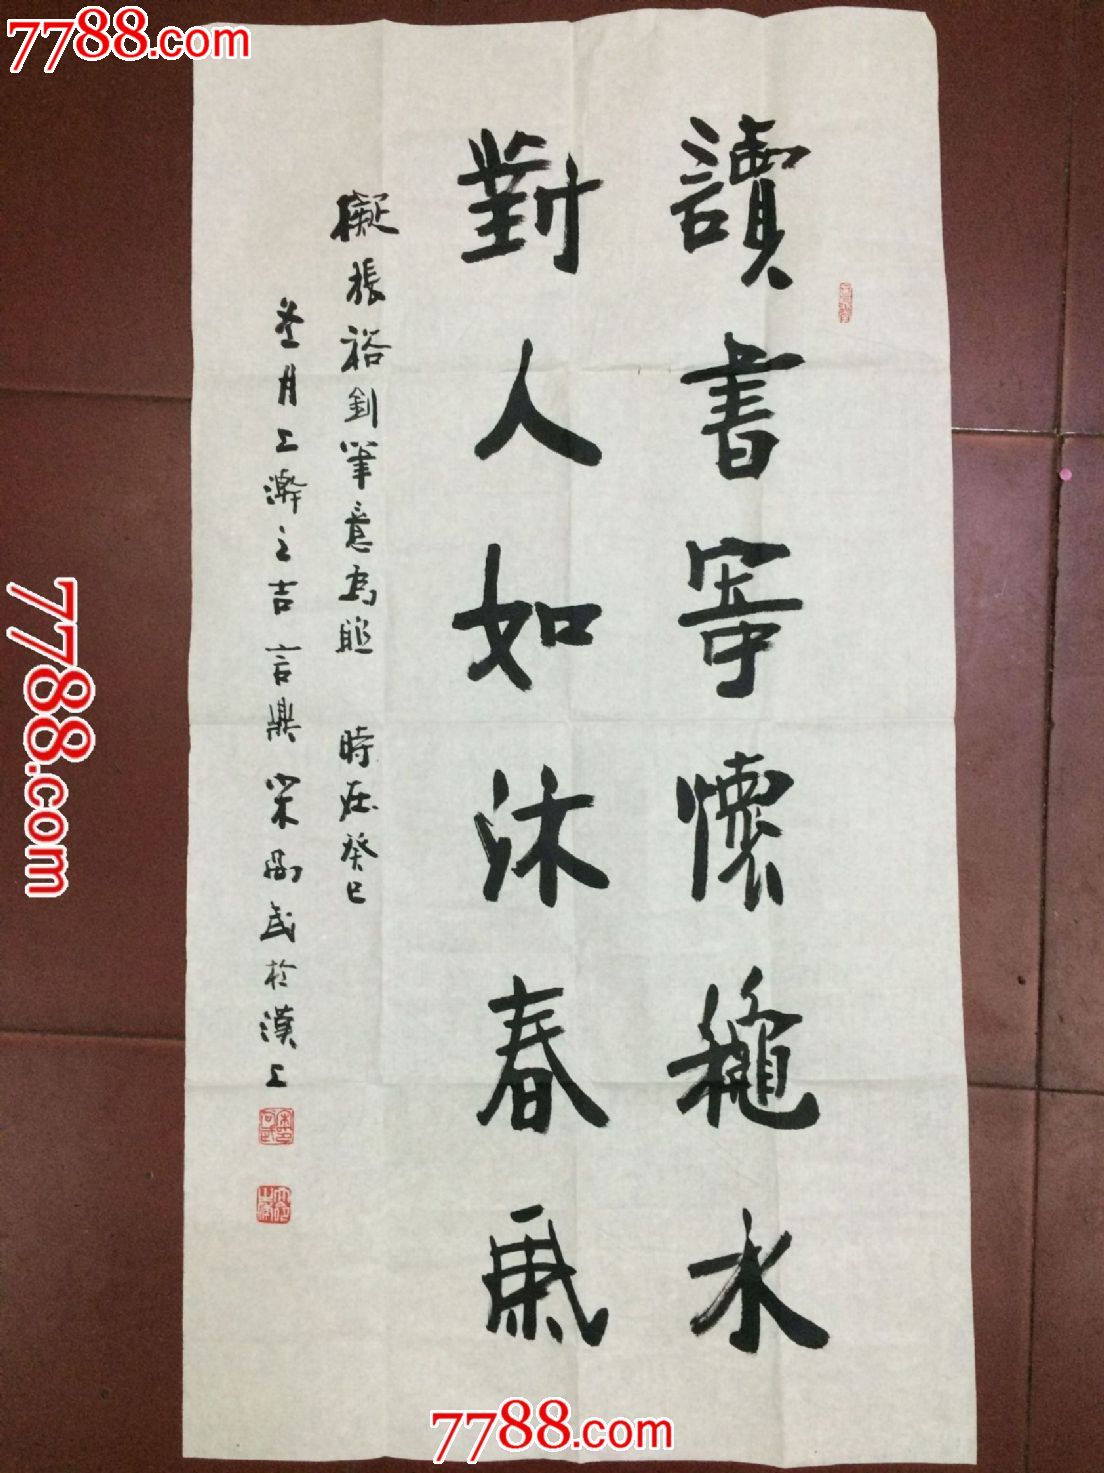 7788.com
讀書寄懷穐水
對人如沐春風
擬張裕釗筆意為聯 時在癸巳
冬月上澣之吉 言鼎 宋勛武於漢上
7788.com
7788.com